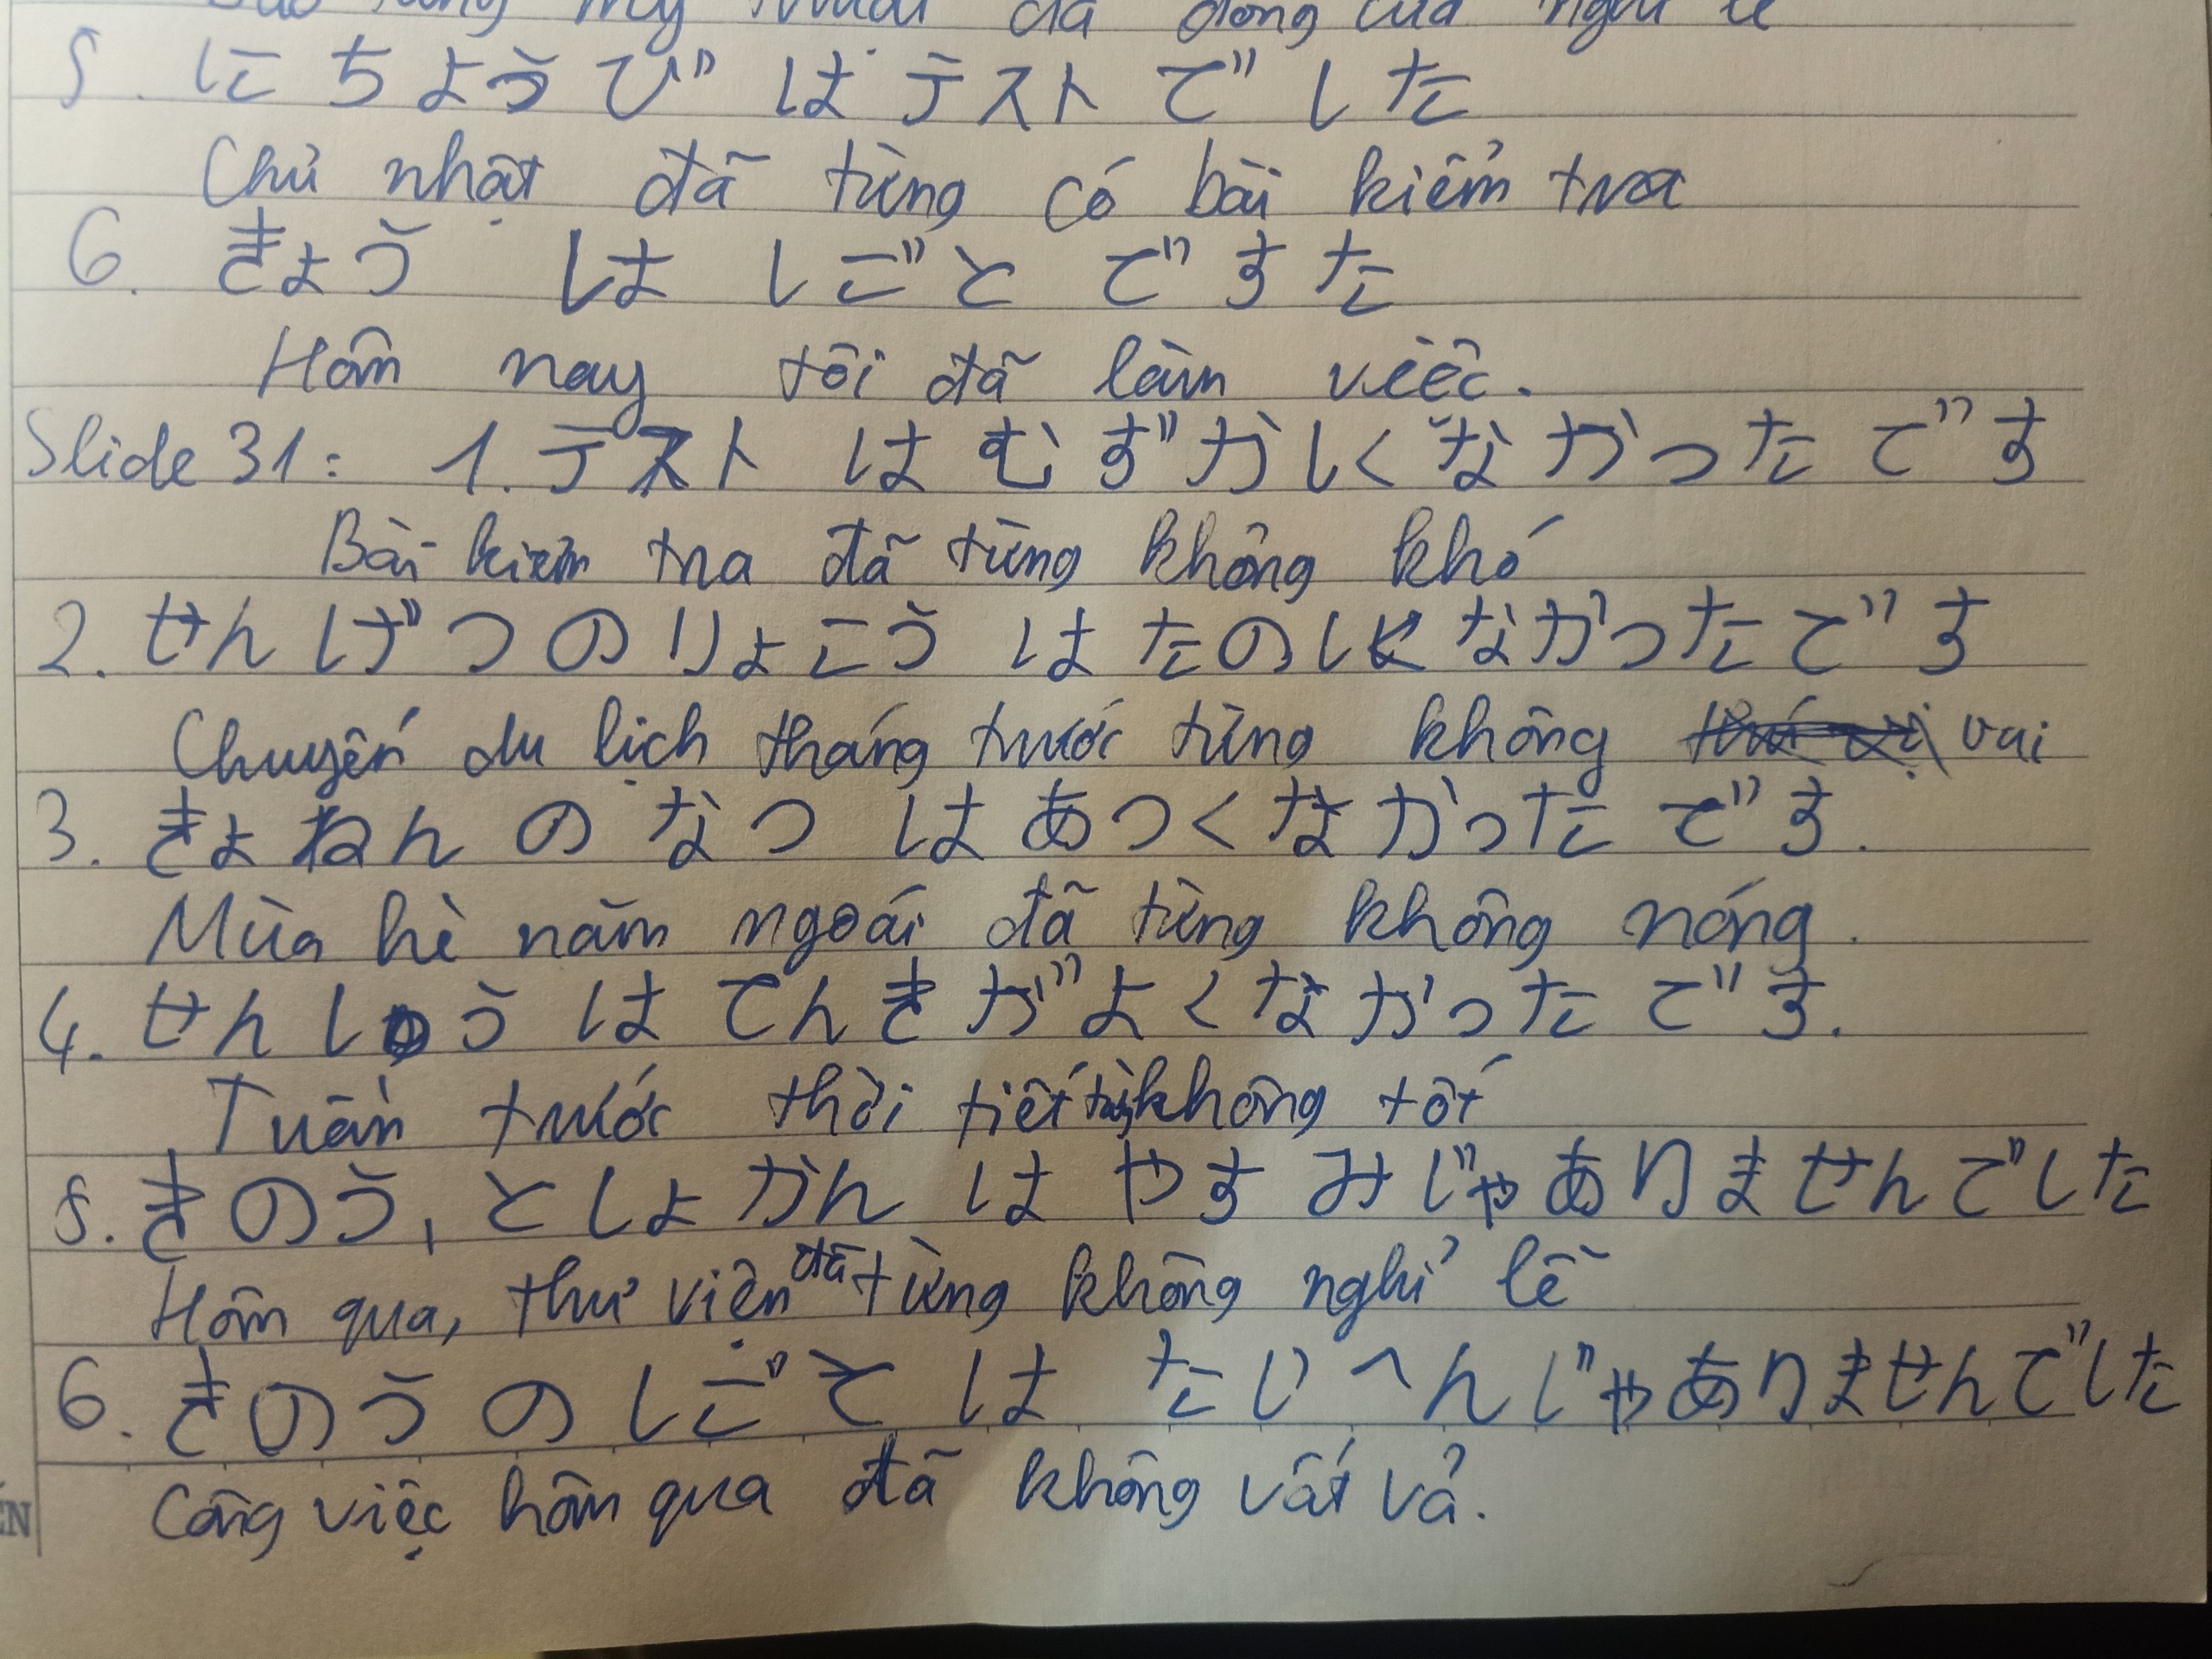 mỹ thuật đã đóng cửa nghỉ lễ
5. にちようび はテストでした
Chủ nhật đã từng có bài kiểm tra
6. きょう は しごと ですた
Hôm nay tôi đã làm việc.
Slide 31: 1. テスト は むずかしくなかつたです
Bài kiểm tra đã từng không khó
2. せんげつのりょこう は たのしくなかったです
Chuyến du lịch tháng trước từng không vui
3. きょねん の なつ は あつくなかったです.
Mùa hè năm ngoái đã từng không nóng.
4. せんしゅう は てんきがよくなかったです.
Tuần trước thời tiết từng không tốt
5. きのう, としょかん は やすみじゃありませんでした
Hôm qua, thư viện đã từng không nghỉ lễ
6. きのう の しごと は たいへんじゃありませんでした
Công việc hôm qua đã không vất vả.